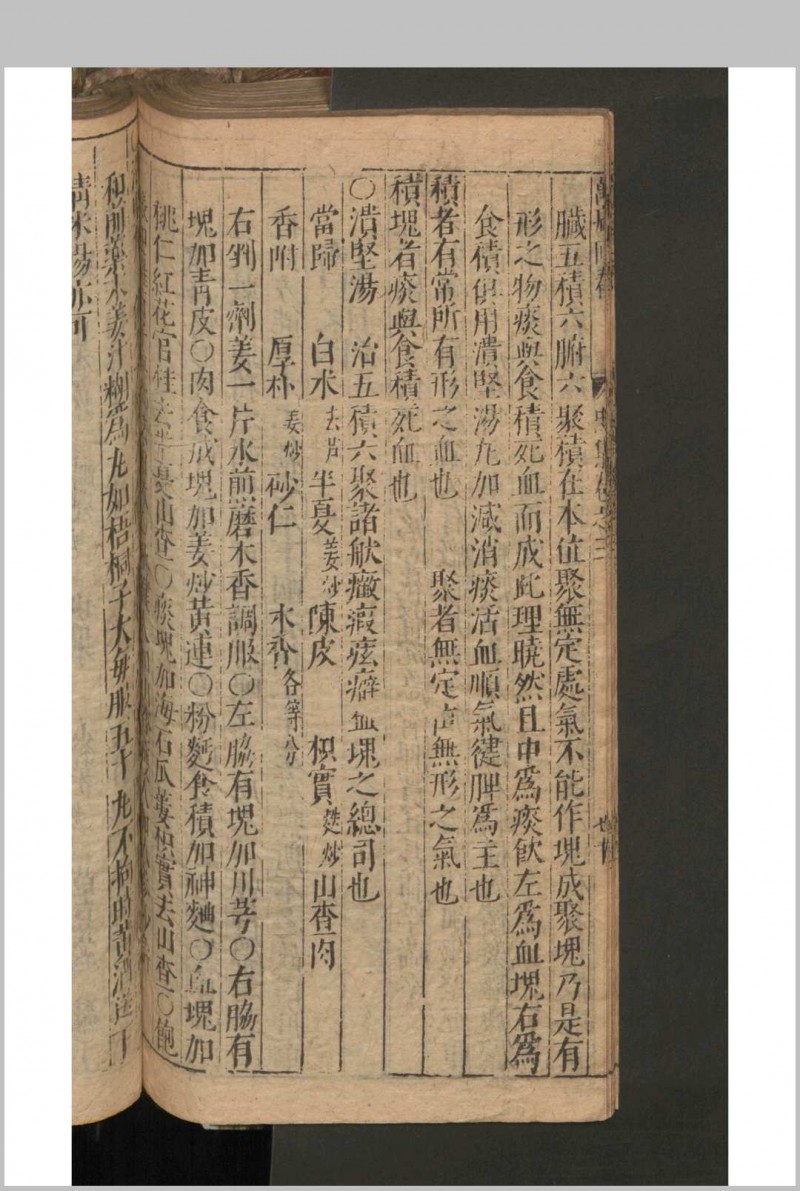 臟五積六腑六聚積在本位聚無定處氣不能作塊成聚塊乃是有
形之物痰與食積死血而成此理曉然且中爲痰飲左爲血塊右爲
食積俱用潰堅湯丸加減消痰活血順氣健脾爲主也
積者有常所有形之血也　聚者無定　無形之氣也
積塊者痰與食積死血也
○潰堅湯　治五積六聚諸般癥瘕痃癖血塊之總司也
當歸　白术去芦　半夏姜炒　陳皮　枳實麩炒　山查肉
香附　厚朴姜炒　砂仁　木香各等分
右剉一劑姜一片水煎磨木香調服○左脇有塊加川芎○右脇有
塊加青皮○肉食成塊加姜炒黃連○粉麵食積加神麯○血塊加
桃仁紅花官桂　山查○痰塊加海石瓜蔞枳實去山查○飽
和前藥水姜汁糊爲丸如梧桐子大每服五十丸不拘時黃酒
清米湯亦可